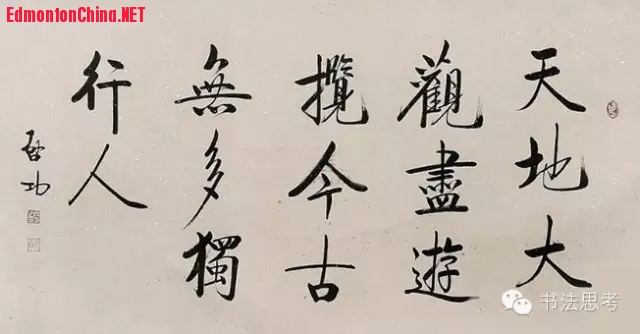 EdmontonChina.NET
天地大
觀盡遊
攬今古
無多獨
行人
啟功
书法思考